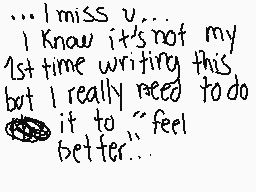 ...I miss u...
I know it's not my
1st time writing this
but I really need to do
it to "feel
better"...